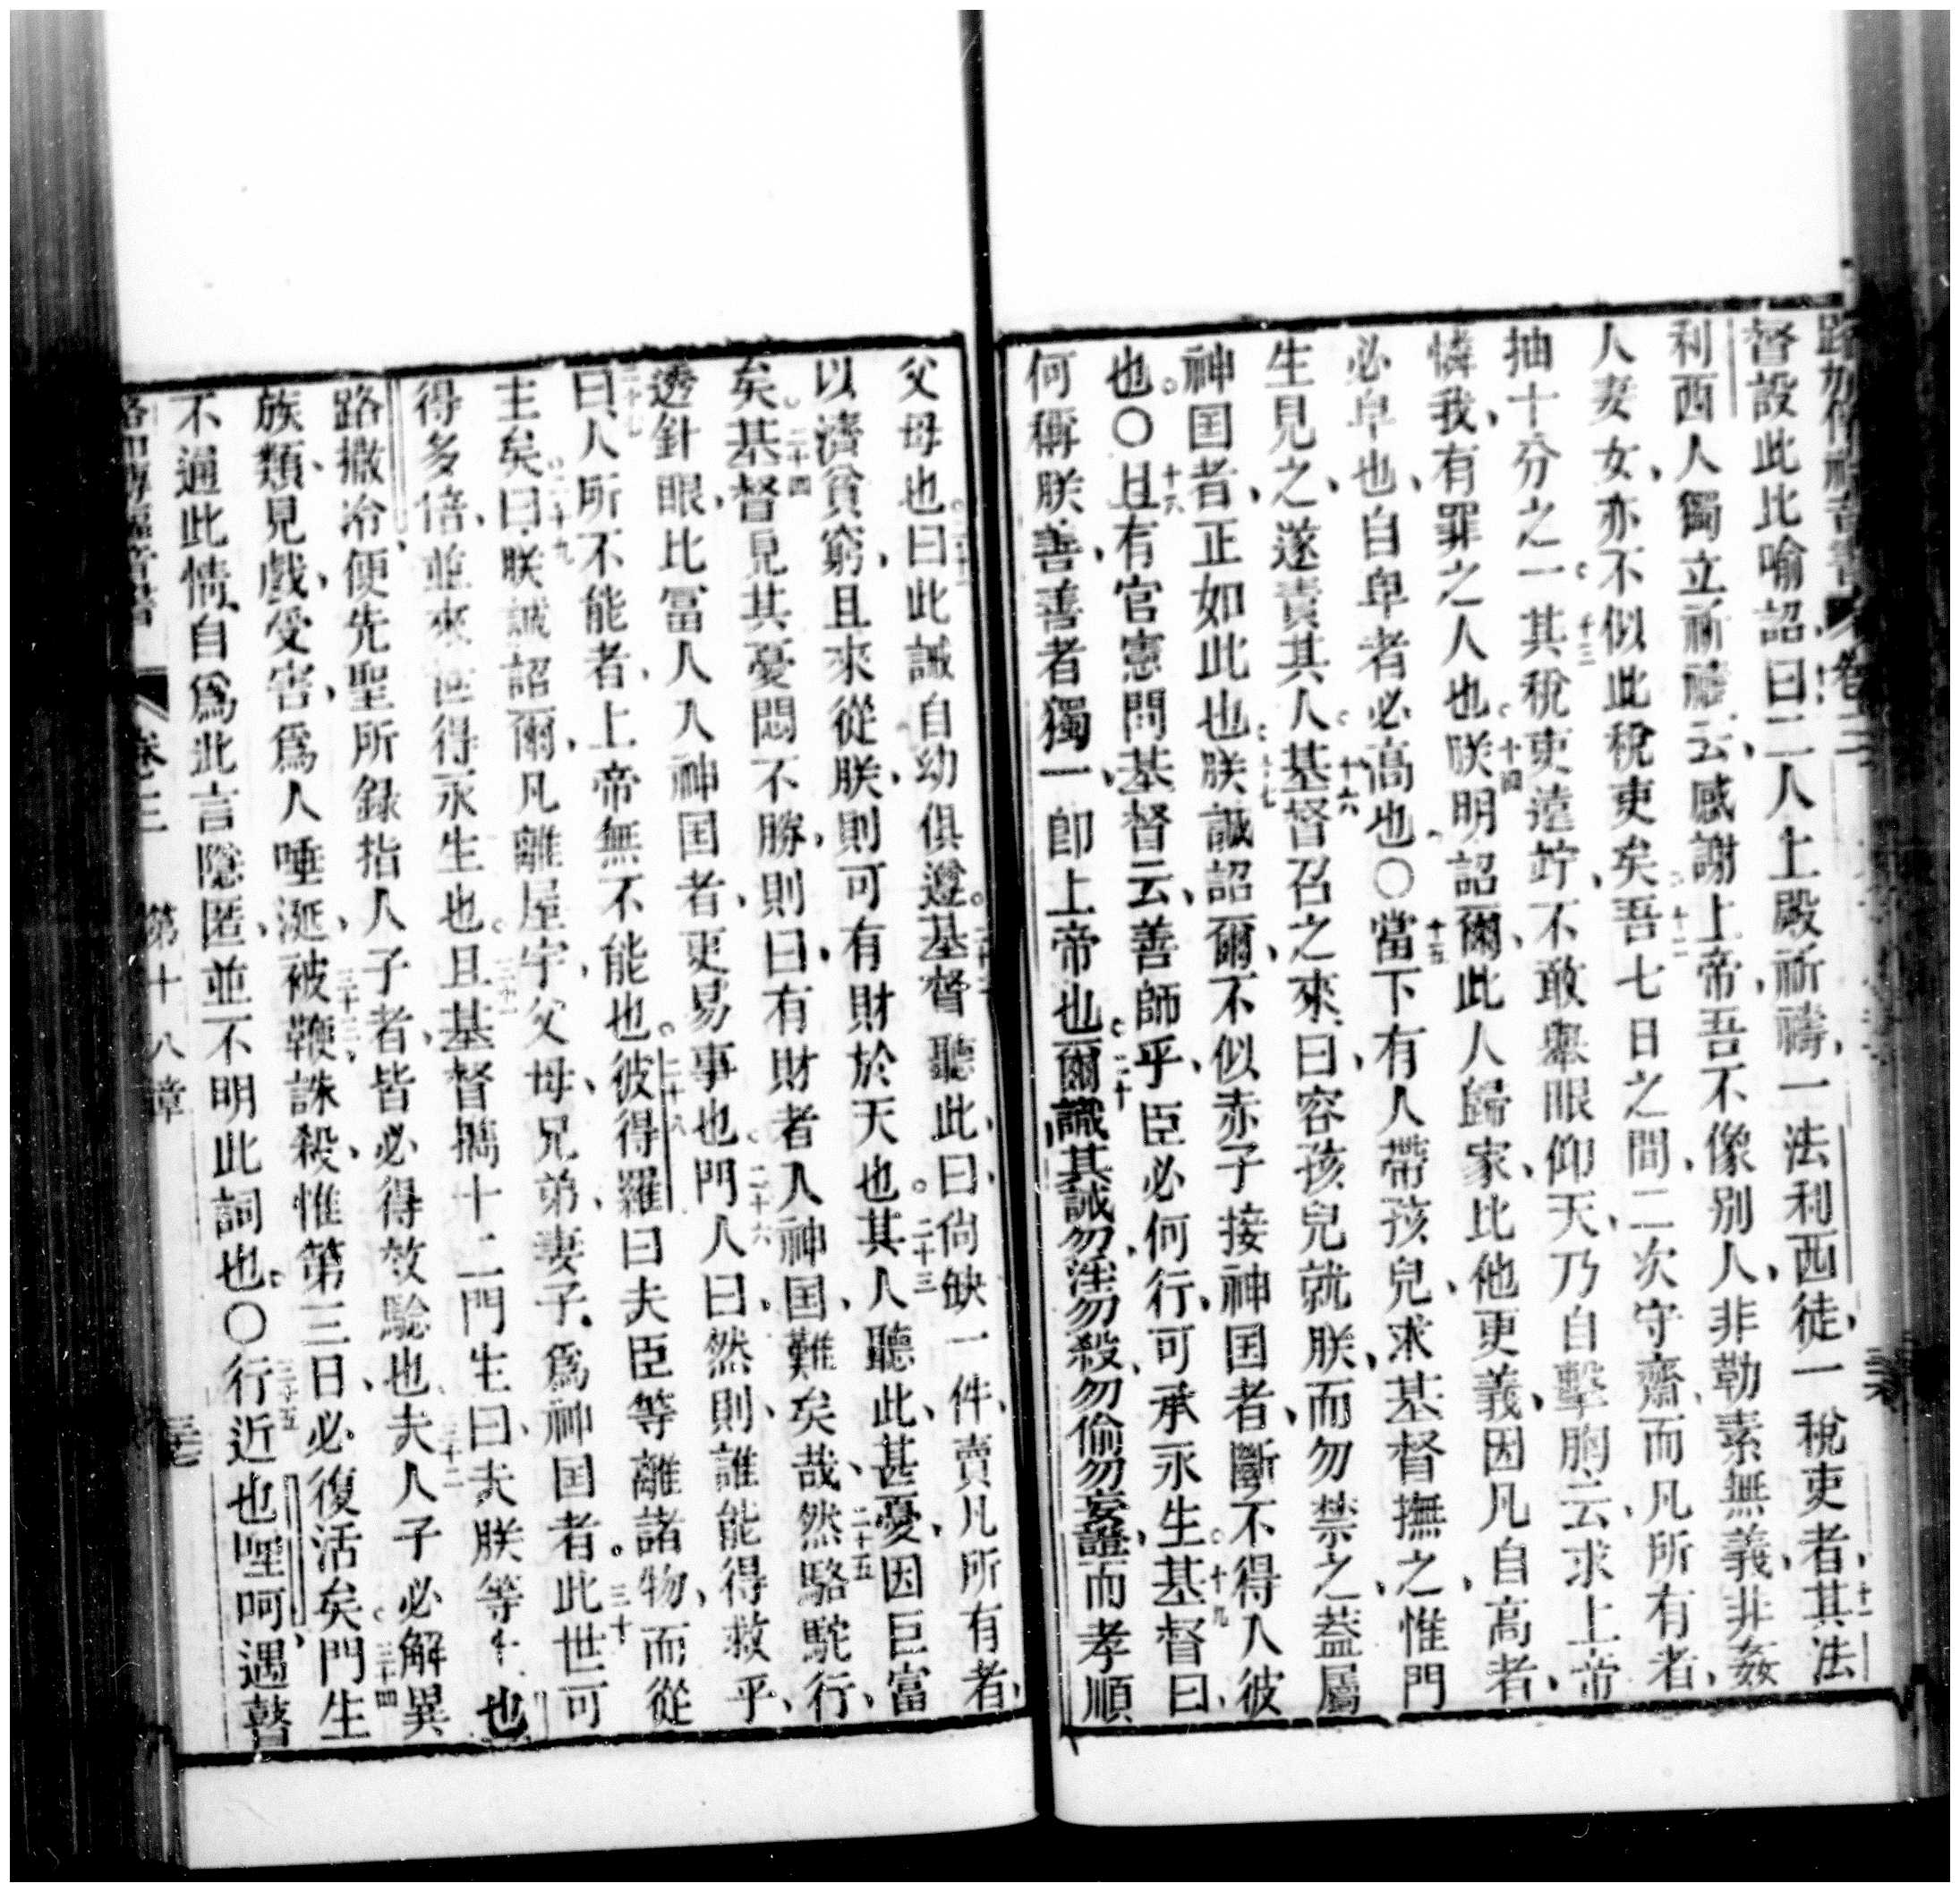 路加傳福音書 卷三
督設此比喻詔曰二人上殿祈禱、一法利西徒、一稅吏者、十一其法
利西人獨立祈禱云、感謝上帝、吾不像别人、非勒素無義、非姦
人妻女、亦不似此稅吏矣、十二吾七日之間、二次守齋、而凡所有者、
抽十分之一。十三其稅吏遠竚、不敢舉眼仰天、乃自擊胸云、求上帝
憐我、有罪之人也。十四朕明詔爾、此人歸家、比他更義、因凡自高者、
必卑也、自卑者必高也。〇十五當下有人帶孩兒、求基督撫之、惟門
生見之、遂責其人。十六基督召之來、曰、容孩兒就朕、而勿禁之、葢屬
神国者、正如此也。十七朕誠詔爾、不似赤子接神国者、斷不得入彼
也。〇十六且有官憲問基督云、善師乎、臣必何行、可承永生。十九基督曰、
何稱朕善、善者獨一、卽上帝也。二十爾識其誡、勿淫、勿殺、勿偷、勿妄證、而孝順
父母也。二十一曰此誡自幼俱遵。二十二基督聽此、曰、尙缺一件、賣凡所有者、
以濟貧窮、且來從朕、則可有財於天也。二十三其人聽此、甚憂、因巨富
矣。二十四基督見其憂悶不勝、則曰、有財者入神国、難矣哉、二十五然駱駝行、
透針眼、比冨人入神国者、更易事也。二十六門人曰、然則、誰能得救乎、
二十七曰、人所不能者、上帝無不能也。二十八彼得羅曰夫臣等離諸物、而從
主矣。二十九曰、朕誠詔爾、凡離屋宇、父母、兄弟、妻子、爲神国者。三十此世可
得多倍、並來世得永生也。三十一且基督攜十二門生曰、夫朕等上也
路撒冷、便先聖所錄指人子者、皆必得效驗也、三十二夫人子必解異
族類、見戲、受害、爲人唾涎、三十三被鞭、誅殺、惟第三日、必復活矣。三十四門生
不通此情、自爲此言隱匿、並不明此詞也。〇三十五行近也哩呵、遇瞽
路加傳福音書 卷三 第十八章